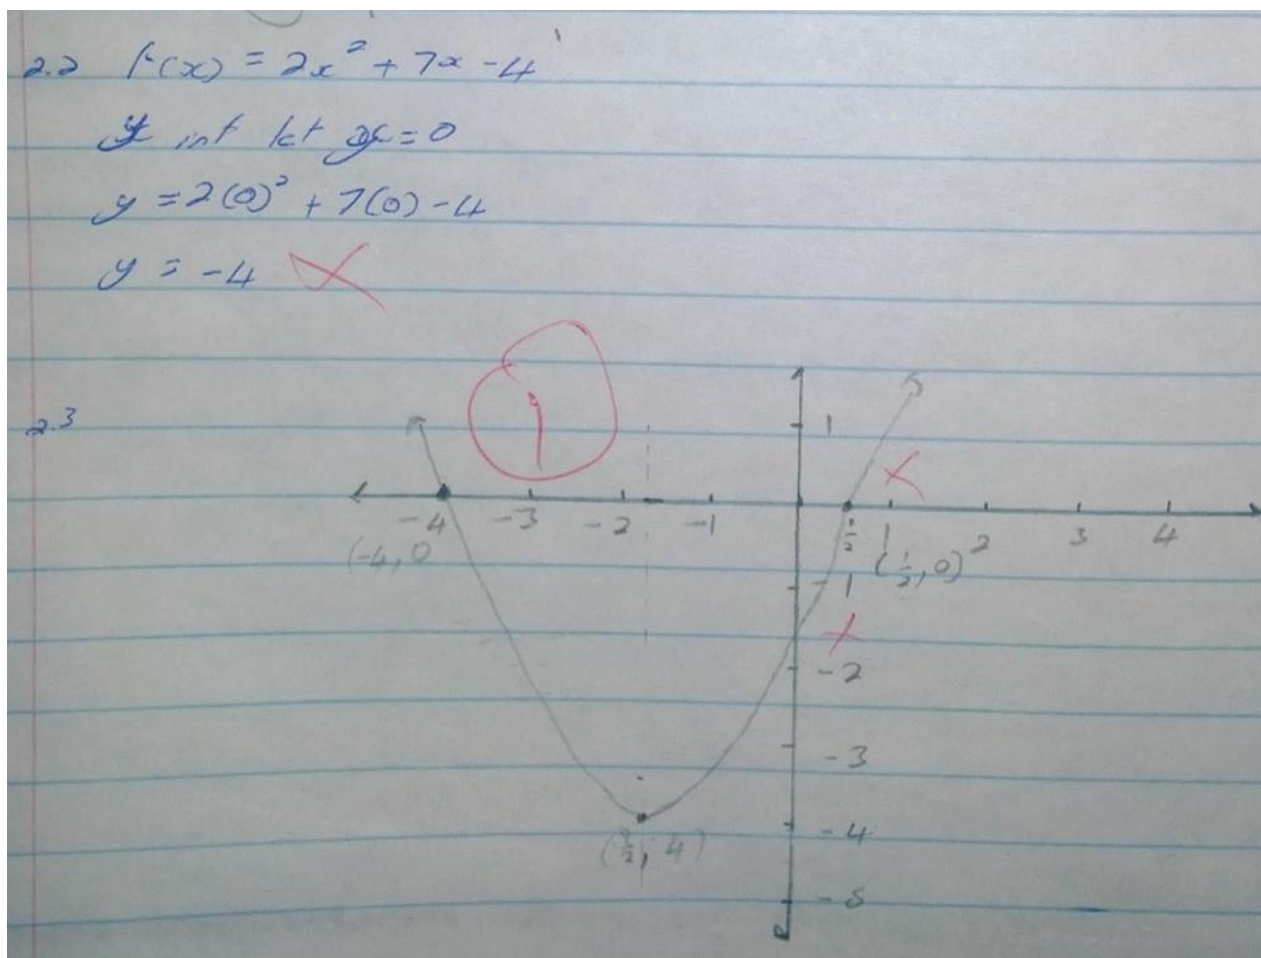 2.2 f(x) = 2x² + 7x - 4
y int let x = 0
y = 2(0)² + 7(0) - 4
y = -4
2.3
1
1
-4 -3 -2 -1 1/2 1 2 3 4
(-4, 0
(1/2, 0)
-1
-2
-3
-4
-5